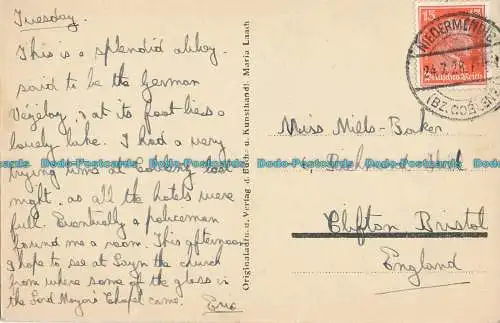 Tuesday.
This is a splendid abbey -
said to be the German
Vézelay, & at its foot lies a
lovely lake. I had a very
trying time at Coblenz last
night, as all the hotels were
full. Eventually a policeman
found me a room. This afternoon
I hope to see at Sayn the church
from where some of the glass in
the Lord Mayor's Chapel came.
Eric
Originalaufn. u. Verlag d. Buch- u. Kunsthandl. Maria Laach
15 15
Deutsches Reich
NIEDERMENDIG
(BZ. COBLENZ)
Miss Mills-Baker
Clifton Bristol
England
Dodo-Postcards Dodo-Postcards Dodo-Postcards Dodo-Postcards Dodo-Postcards